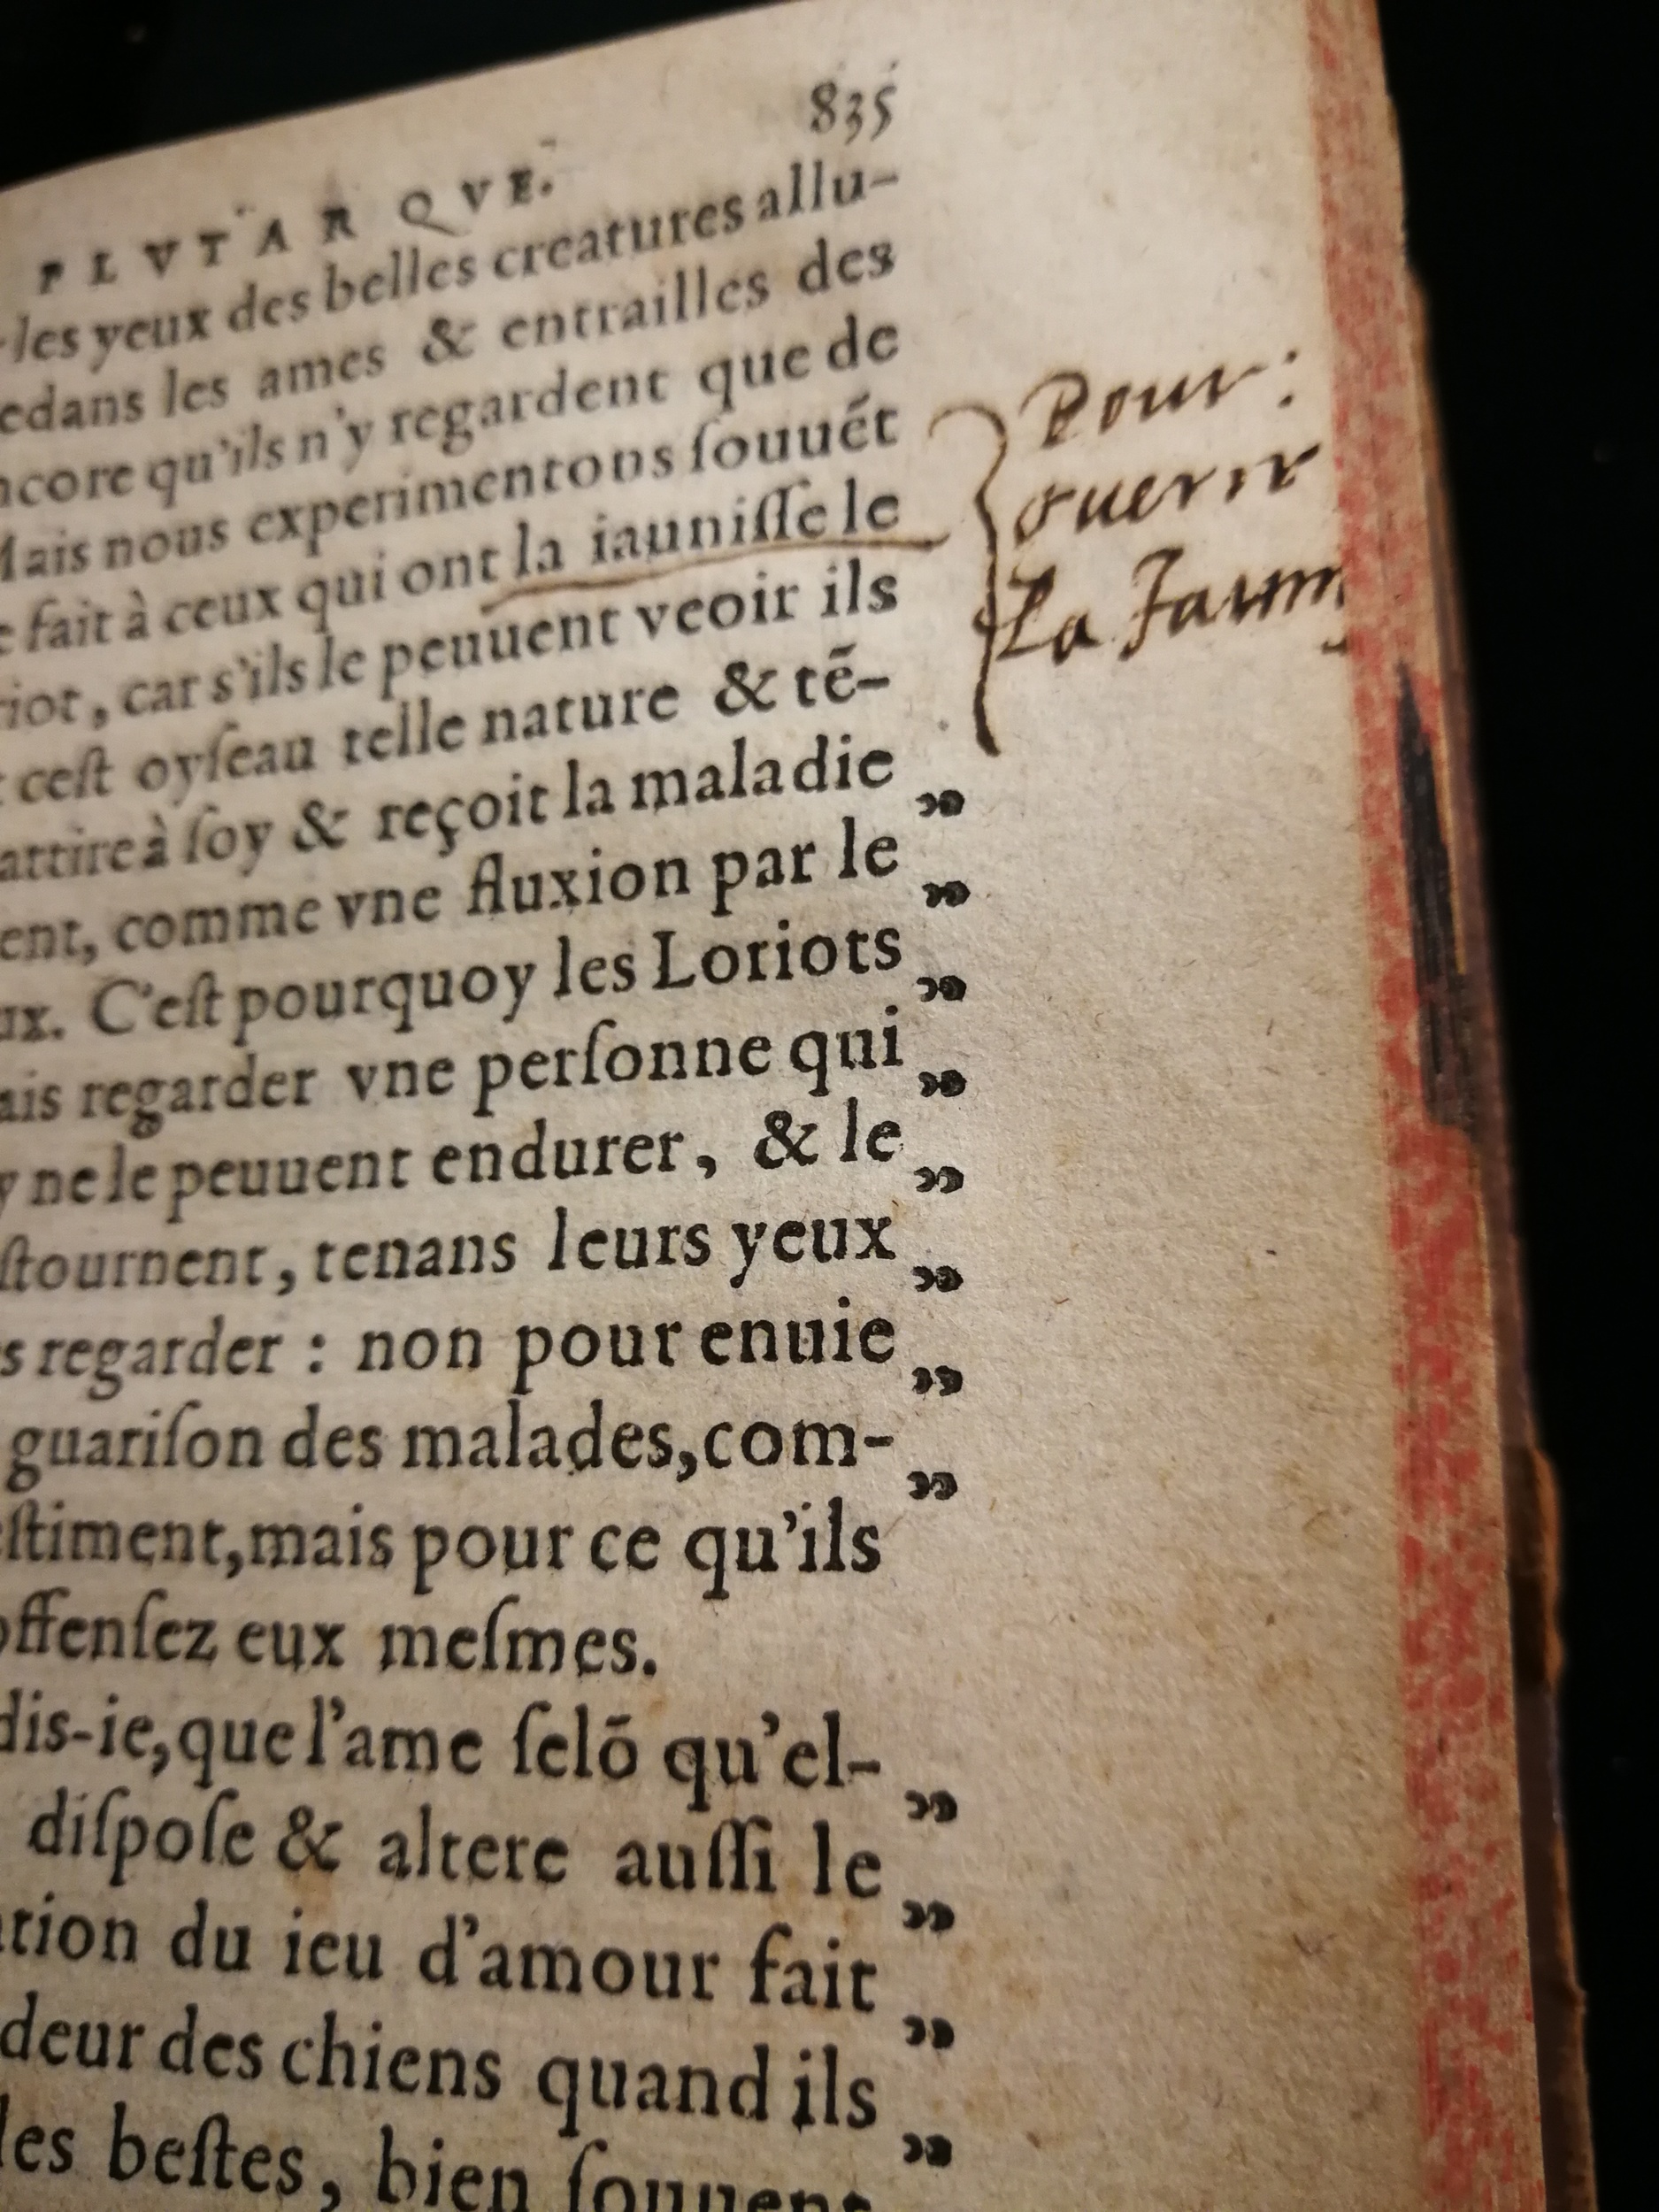 835
PLVTARQVE.
les yeux des belles creatures allu-
edans les ames & entrailles des
ncore qu'ils n'y regardent que de
Mais nous experimentons ſouuẽt
e fait à ceux qui ont la iauniſſe le
riot, car s'ils le peuuent veoir ils
ceſt oyſeau telle nature & tẽ-
attire à ſoy & reçoit la maladie „
ent, comme vne fluxion par le „
ux. C'eſt pourquoy les Loriots „
ais regarder vne perſonne qui „
y ne le peuuent endurer, & le „
ſtournent, tenans leurs yeux „
s regarder : non pour enuie „
guariſon des malades, com- „
eſtiment, mais pour ce qu'ils
offenſez eux meſmes.
dis-ie, que l'ame ſelõ qu'el- „
diſpoſe & altere auſſi le „
ation du ieu d'amour fait „
deur des chiens quand ils „
les beſtes, bien ſouuent
Pour:
La Jaun